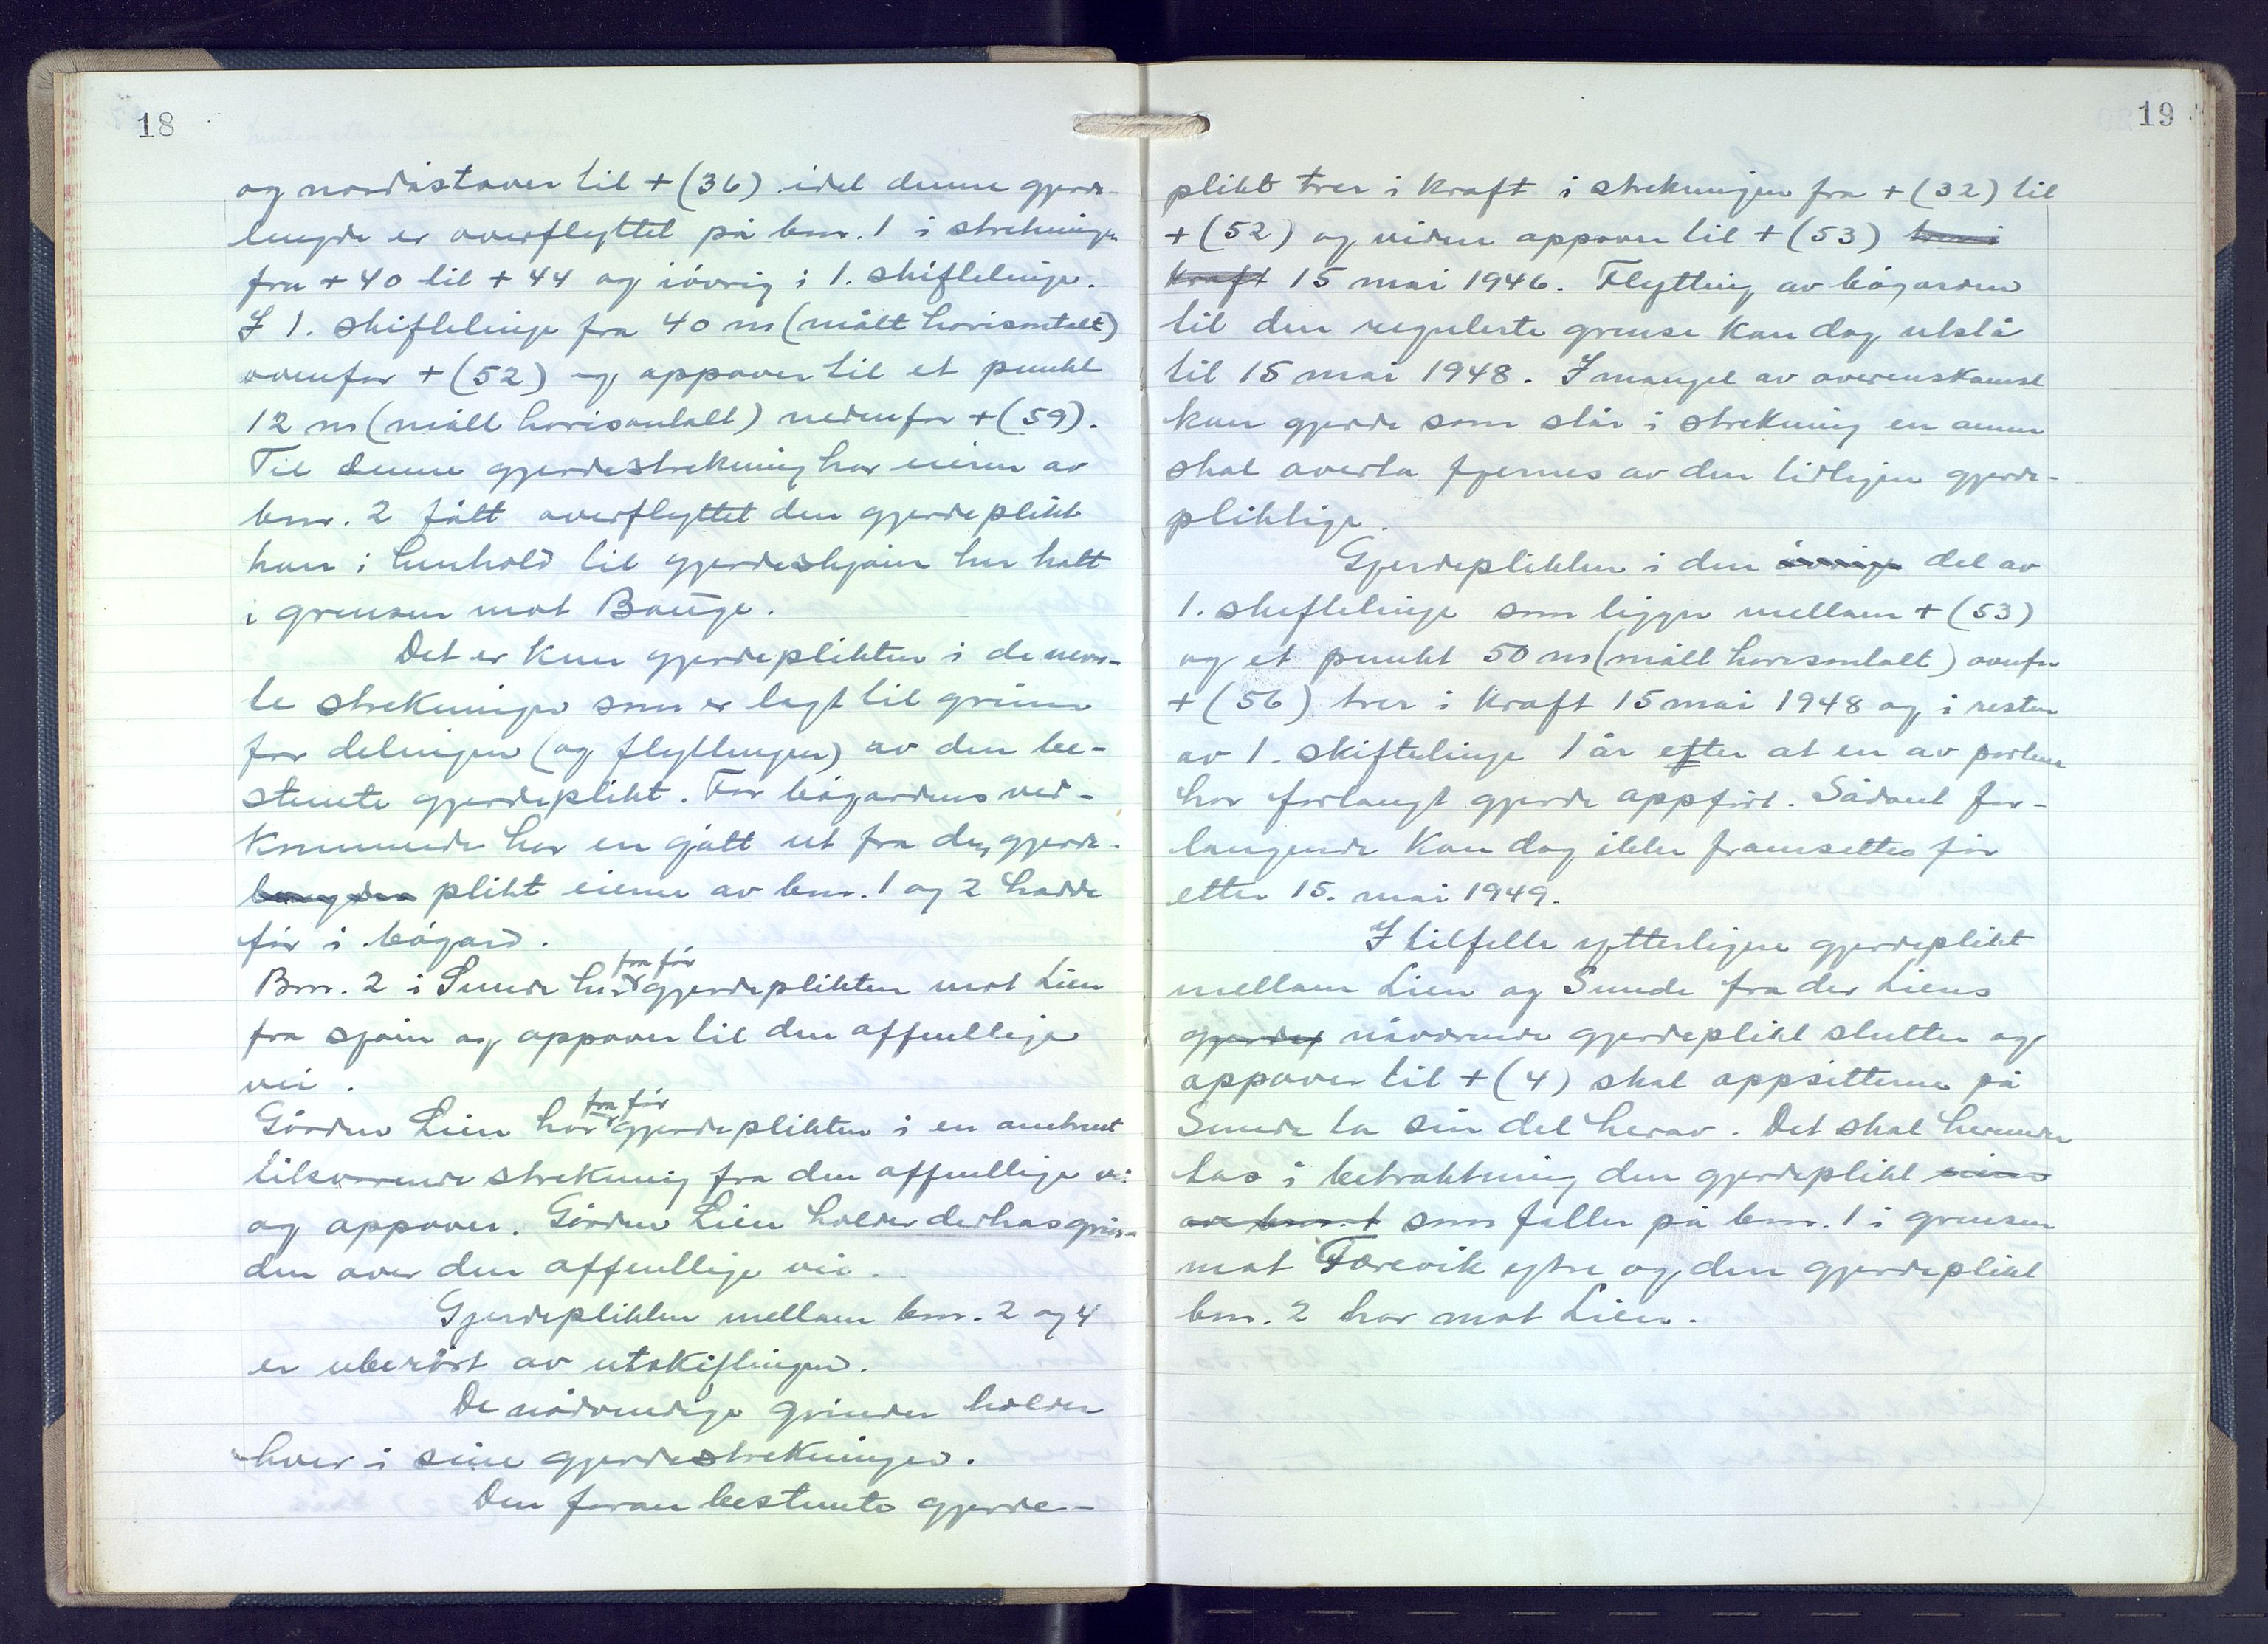 18
og nordåstover til + (36) idet denne gjerde-
lengde er overflyttet på bnr. 1 i strekningen
fra + 40 til + 44 og iøvrig i 1. skiftelinje.
I 1. skiftelinje fra 40 m (målt horisontalt)
ovenfor + (52) og oppover til et punkt
12 m (målt horisontalt) nedenfor + (59).
Til denne gjerdestrekning har eieren av
bnr. 2 fått overflyttet den gjerdeplikt
han i henhold til gjerdeskjøin har hatt
i grensen mot Bauge.
Det er kun gjerdeplikten i de nevn-
te strekninger som er lagt til grunn
for delingen (og flyttingen) av den be-
stemte gjerdeplikt. For bøgardens ved-
kommende har en gått ut fra den gjerde-
lengden plikt eierne av bnr. 1 og 2 hadde
før i bøgard.
fra før
Bnr. 2 i Sunde har gjerdeplikten mot Lien
fra sjøin og oppover til den offentlige
vei.
fra før
Gården Lien har gjerdeplikten i en omtrent
tilsvarende strekning fra den offentlige vei
og oppover. Gården Lien holder derhos grin-
den over den offentlige vei.
Gjerdeplikten mellom bnr. 2 og 4
er uberørt av utskiftingen.
De nødvendige grinder holder
hver i sine gjerdestrekninger.
Den foran bestemte gjerde-
19
plikt trer i kraft i strekningen fra + (32) til
+ (52) og videre oppover til + (53) trer i
kraft 15 mai 1946. Flytting av bøgarden
til den regulerte grense kan dog utstå
til 15 mai 1948. I mangel av overenskomst
kan gjerde som står i strekning en annen
skal overta fjernes av den tidligere gjerde-
pliktige.
Gjerdeplikten i den øvrige del av
1. skiftelinje som ligger mellom + (53)
og et punkt 50 m (målt horisontalt) ovenfor
+ (56) trer i kraft 15 mai 1948 og i resten
av 1. skiftelinje 1 år efter at en av partene
har forlangt gjerde oppført. Sådant for-
langende kan dog ikke framsettes før
etter 15. mai 1949.
I tilfelle ytterligere gjerdeplikt
mellom Lien og Sunde fra der Liens
gjerdepl nåværende gjerdeplikt slutter og
oppover til + (4) skal oppsitterne på
Sunde ta sin del herav. Det skal herunder
tas i betraktning den gjerdeplikt eiers
av bnr. 1 som faller på bnr. 1 i grensen
mot Færevik ytre og den gjerdeplikt
bnr. 2 har mot Lien.